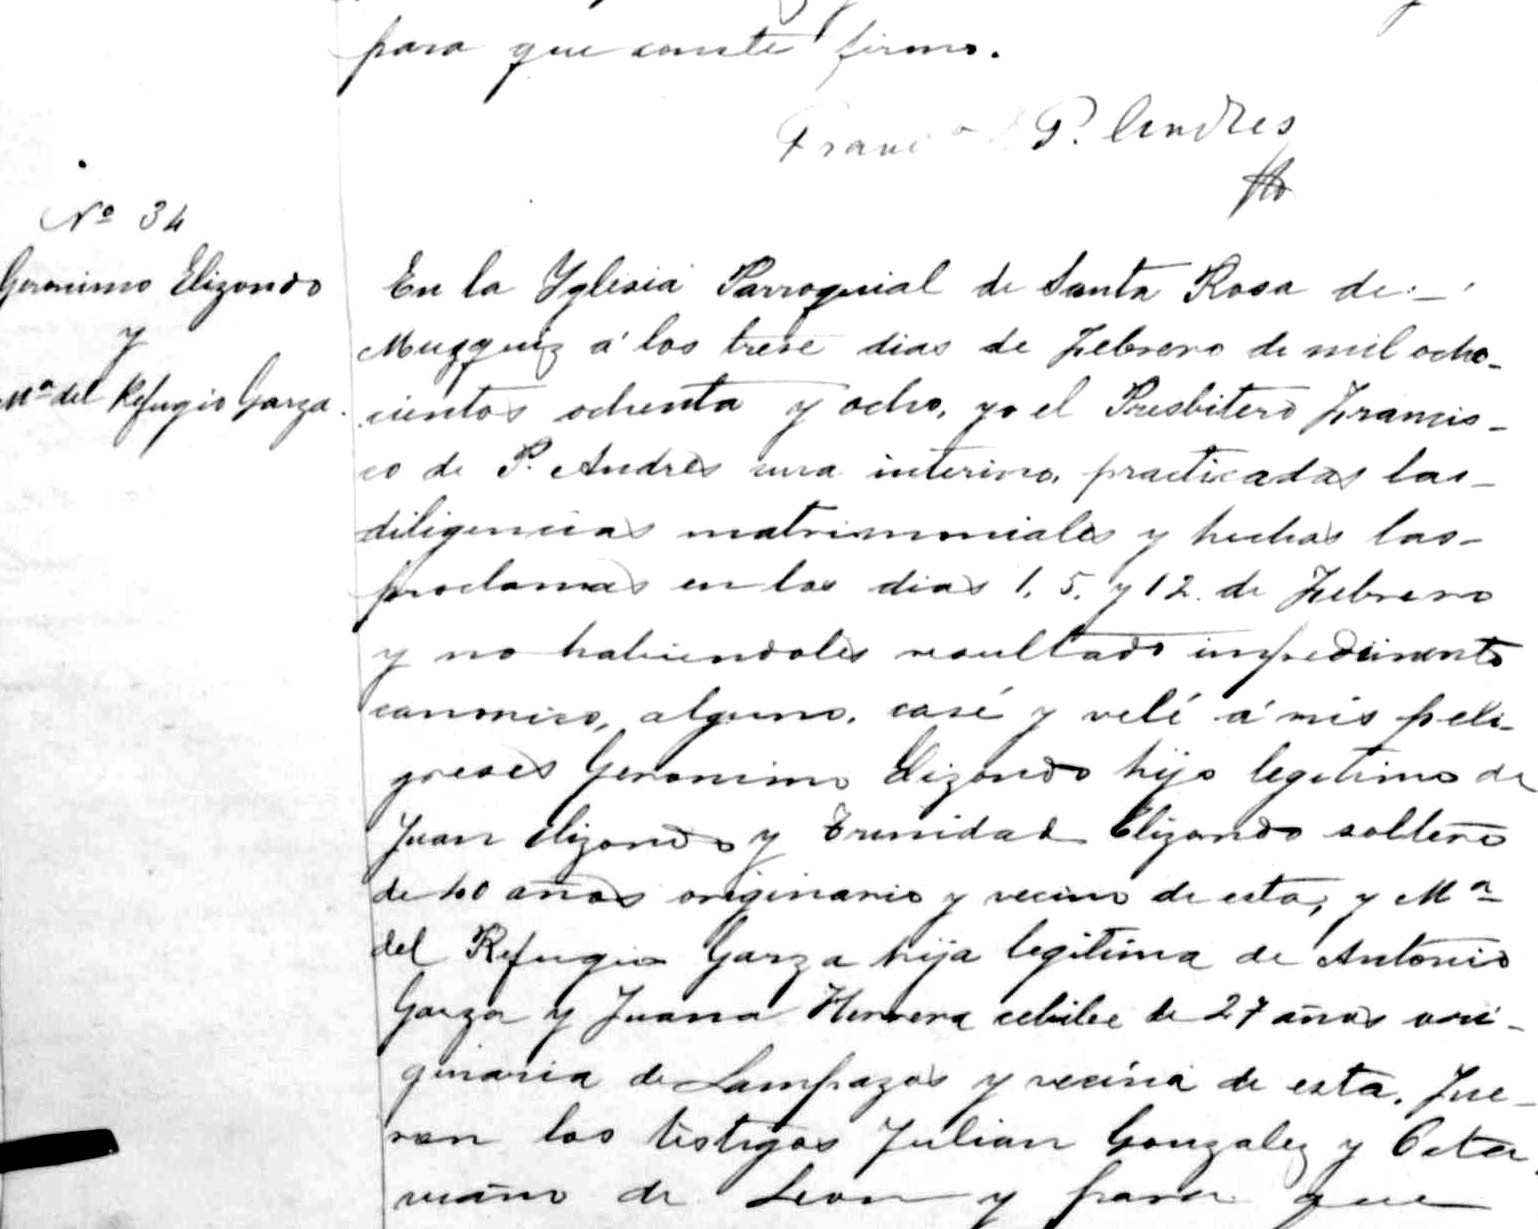 para que conste firmo.
Franco P. Andres
Nº 34
Geronimo Elizondo
y
Mª del Refugio Garza.
En la Yglesia Parroquial de Santa Rosa de
Muzquiz á los trese dias de Febrero de mil ocho-
cientos ochenta y ocho, yo el Presbitero Francis-
co de P. Andres cura interino, practicadas las-
diligencias matrimoniales y hechas las-
proclamas en los dias 1, 5, y 12 de Febrero
y no habiendoles resultado impedimento
canonico, alguno, casé y velé á mis feli-
greses Geronimo Elizondo hijo legitimo de
Juan Elizondo y Trinidad Elizondo soltero
de 40 años originario y vecino de esta, y Mª
del Refugio Garza hija legitima de Antonio
Garza y Juana Herrera celibe de 27 años ori-
ginaria de Lampazos y vecina de esta. Fue-
ron los testigos Julian Gonzalez y Octa-
viano de Leon y para que